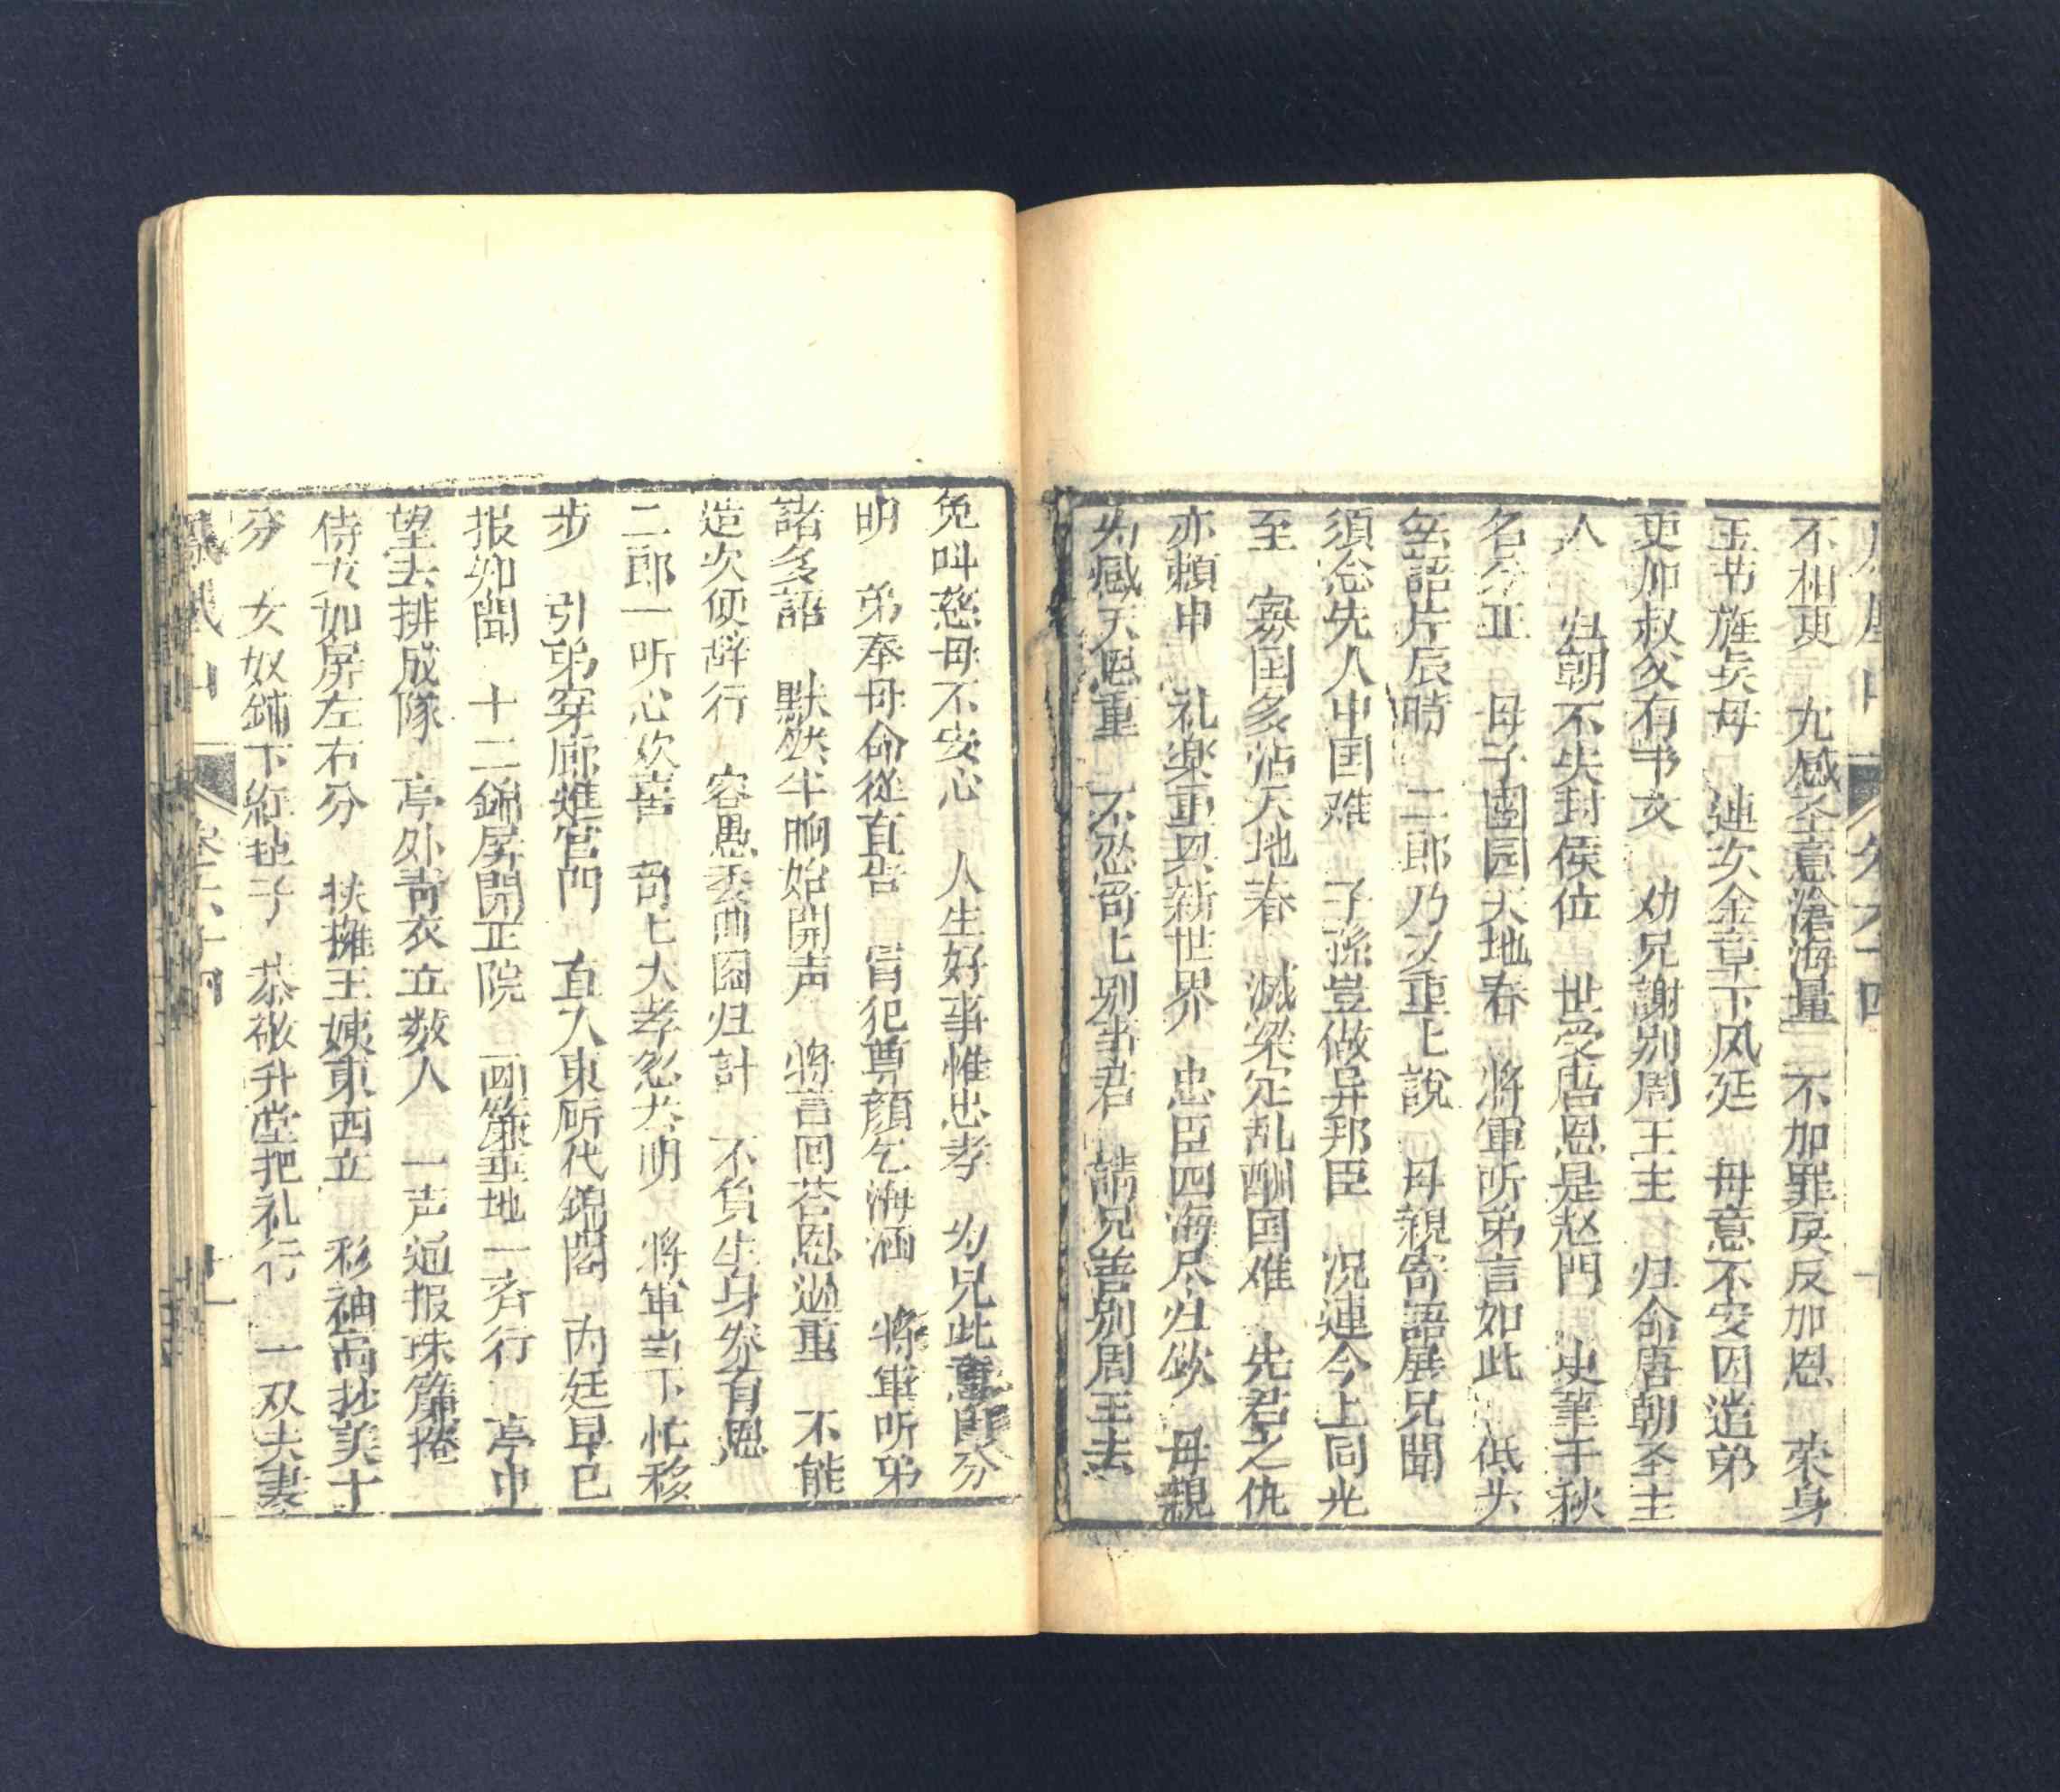 不相更 九感圣意滄海量 不加罪戾反加恩 荣身
玉节旌兵母 連女金章下风延 母意不安因遣弟
更加叔父有书文 劝兄謝别周王主 归命唐朝圣主
人 归朝不失封侯位 世受唐恩是赵門 史筆千秋
名分正 母子團园天地春 将軍听弟言如此 低头
無語片辰時 二郎乃又重上說 母親寄語展兄聞
須念先人中国难 子孫豈做异邦臣 况連今上同光
至 寡国多沾天地春 滅梁定乱酬国难 先君之仇
亦頼申 礼楽重兴新世界 忠臣四海尽归欽 母親
为感天恩重 不忿哥上别事君 請兄善别周王去
免叫慈母不安心 人生好事惟忠孝 为兄此意 分
明 弟奉母命從直告 冐犯尊顔乞海涵 将軍听弟
諸多語 默然半晌始開声 将言回荅恩過重 不能
造次便辞行 容愚委曲圖归計 不負生身劵有恩
二郎一听心欢喜 哥上大孝忽大明 将軍当下忙移
步 引弟穿廊進官門 直入東所代錦閣 内廷早已
报知聞 十二錦屏開正院 四簾垂地一齐行 亭中
望去排成隊 亭外青衣立数人 一声通报珠簾捲
侍女如屏左右分 扶擁王姨東西立 彩袖高抄美十
分 女奴鋪下紅毡子 恭敬升堂把礼行 一双夫妻
鳳凰山 卷六十四 十一